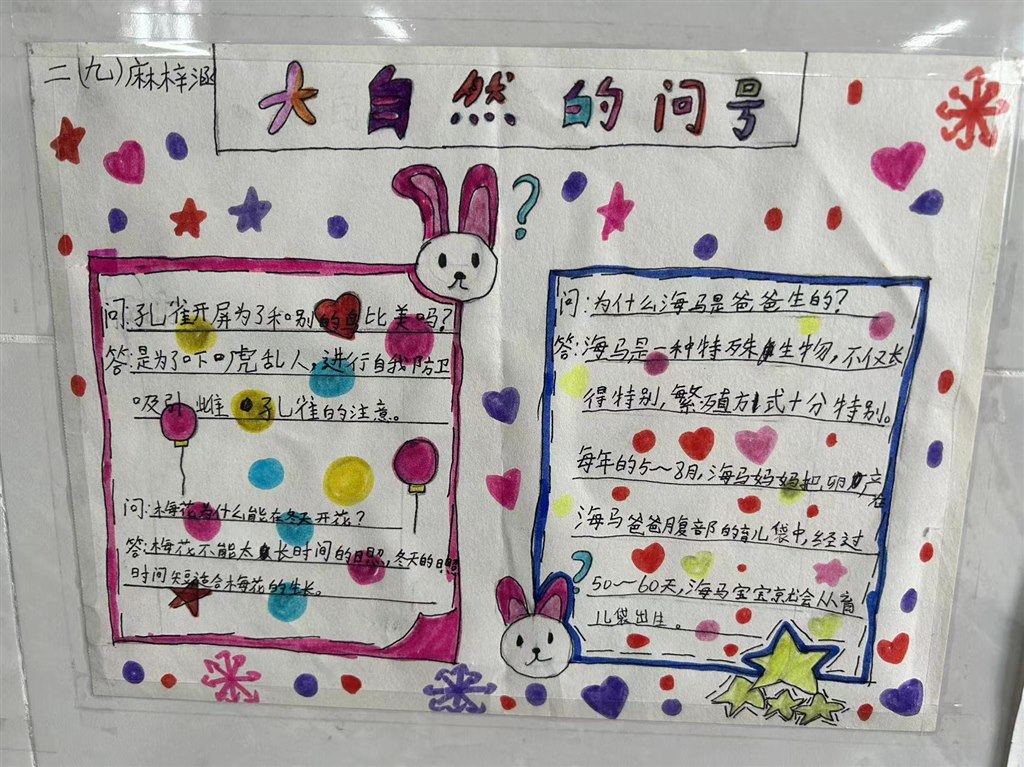 二(九)麻梓涵
大自然的问号
?
问:孔雀开屏为了和别的鸟比美吗?
答:是为了吓唬乱人,进行自我防卫
吸引雌孔雀的注意。
问:梅花为什么能在冬天开花?
答:梅花不能太长时间的日照,冬天的日照
时间短适合梅花的生长。
问:为什么海马是爸爸生的?
答:海马是一种特殊生物,不仅长
得特别,繁殖方式十分特别。
每年的5~8月,海马妈妈把卵产在
海马爸爸腹部的育儿袋中,经过
50~60天,海马宝宝就会从育
儿袋出生。
?